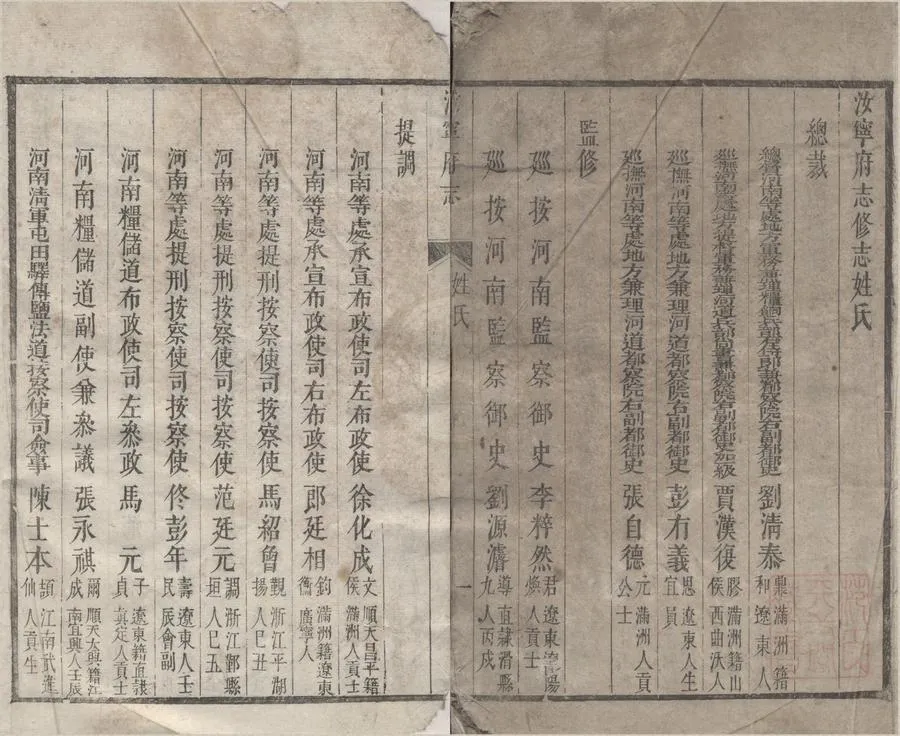 汝寧府志修志姓氏
總裁
總督河南等處地方軍務兼理糧餉兵部左侍郎兼都察院右副都御史 劉清泰 鼎和 滿洲籍遼東人
賈漢復 膠侯 滿洲籍山西曲沃人
巡撫河南等處地方兼理河道都察院右副都御史 彭有義 思宜 遼東人生員
巡撫河南等處地方兼理河道都察院右副都御史 張自德 元公 滿洲人貢士
監修
巡按河南監察御史 李粹然 君煥 遼東瀋陽人貢士
巡按河南監察御史 劉源濬 導九 直隸滑縣人丙戌
汝寧府志 姓氏 一
提調
河南等處承宣布政使司左布政使 徐化成 文侯 順天昌平籍滿洲人貢士
河南等處承宣布政使司右布政使 郎廷相 鈞衡 滿洲籍遼東廣寧人
河南等處提刑按察使司按察使 馬紹曾 覲揚 浙江平湖人己丑
河南等處提刑按察使司按察使 范廷元 調垣 浙江鄞縣人己丑
河南等處提刑按察使司按察使 佟彭年 壽民 遼東人壬辰會副
河南糧儲道布政使司左叅政 馬元 子貞 遼東籍直隸真定人貢士
河南糧儲道副使兼叅議 張永祺 爾成 順天大興籍江南宜興人壬辰
河南清軍屯田驛傳鹽法道按察使司僉事 陳士本 頡仙 江南武進人貢生